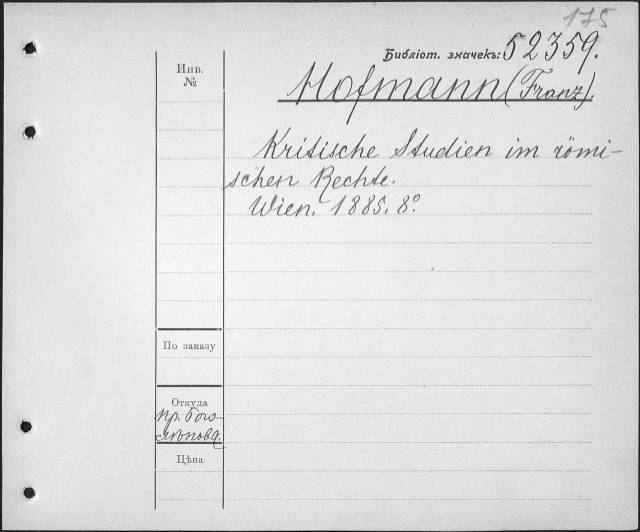 175
Библіот. значекъ: 52359.
Инв.
№
Hofmann (Franz).
Kritische Studien im römi-
schen Rechte.
Wien. 1885. 8º.
По заказу
Откуда
пр. Бого-
лѣпова.
Цѣна